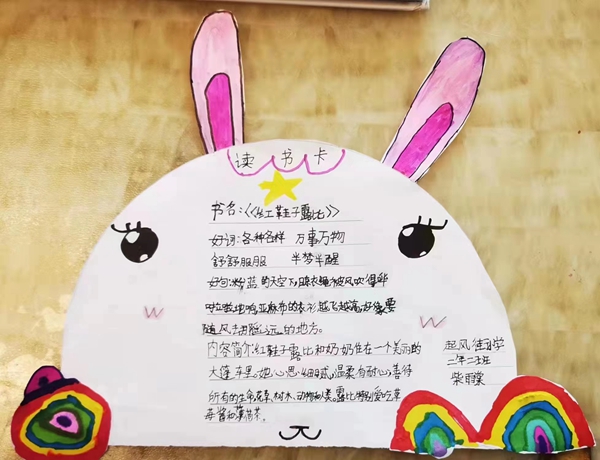 读书卡
书名:《红鞋子露比》
好词:各种各样 万事万物
舒舒服服 半梦半醒
好句:粉蓝的天空下,晾衣绳被风吹得哗
啦啦地响,亚麻布的衣衫越飞越高,好像要
随风去那遥远的地方。
内容简介:红鞋子露比和奶奶住在一个美丽的
大莲蓬里。她心思细腻,温柔有耐心,善待
所有的生命花草、树木、动物和美。露比特别爱吃草
莓酱和薄荷茶。
起风街小学
二年二班
柴雨棠